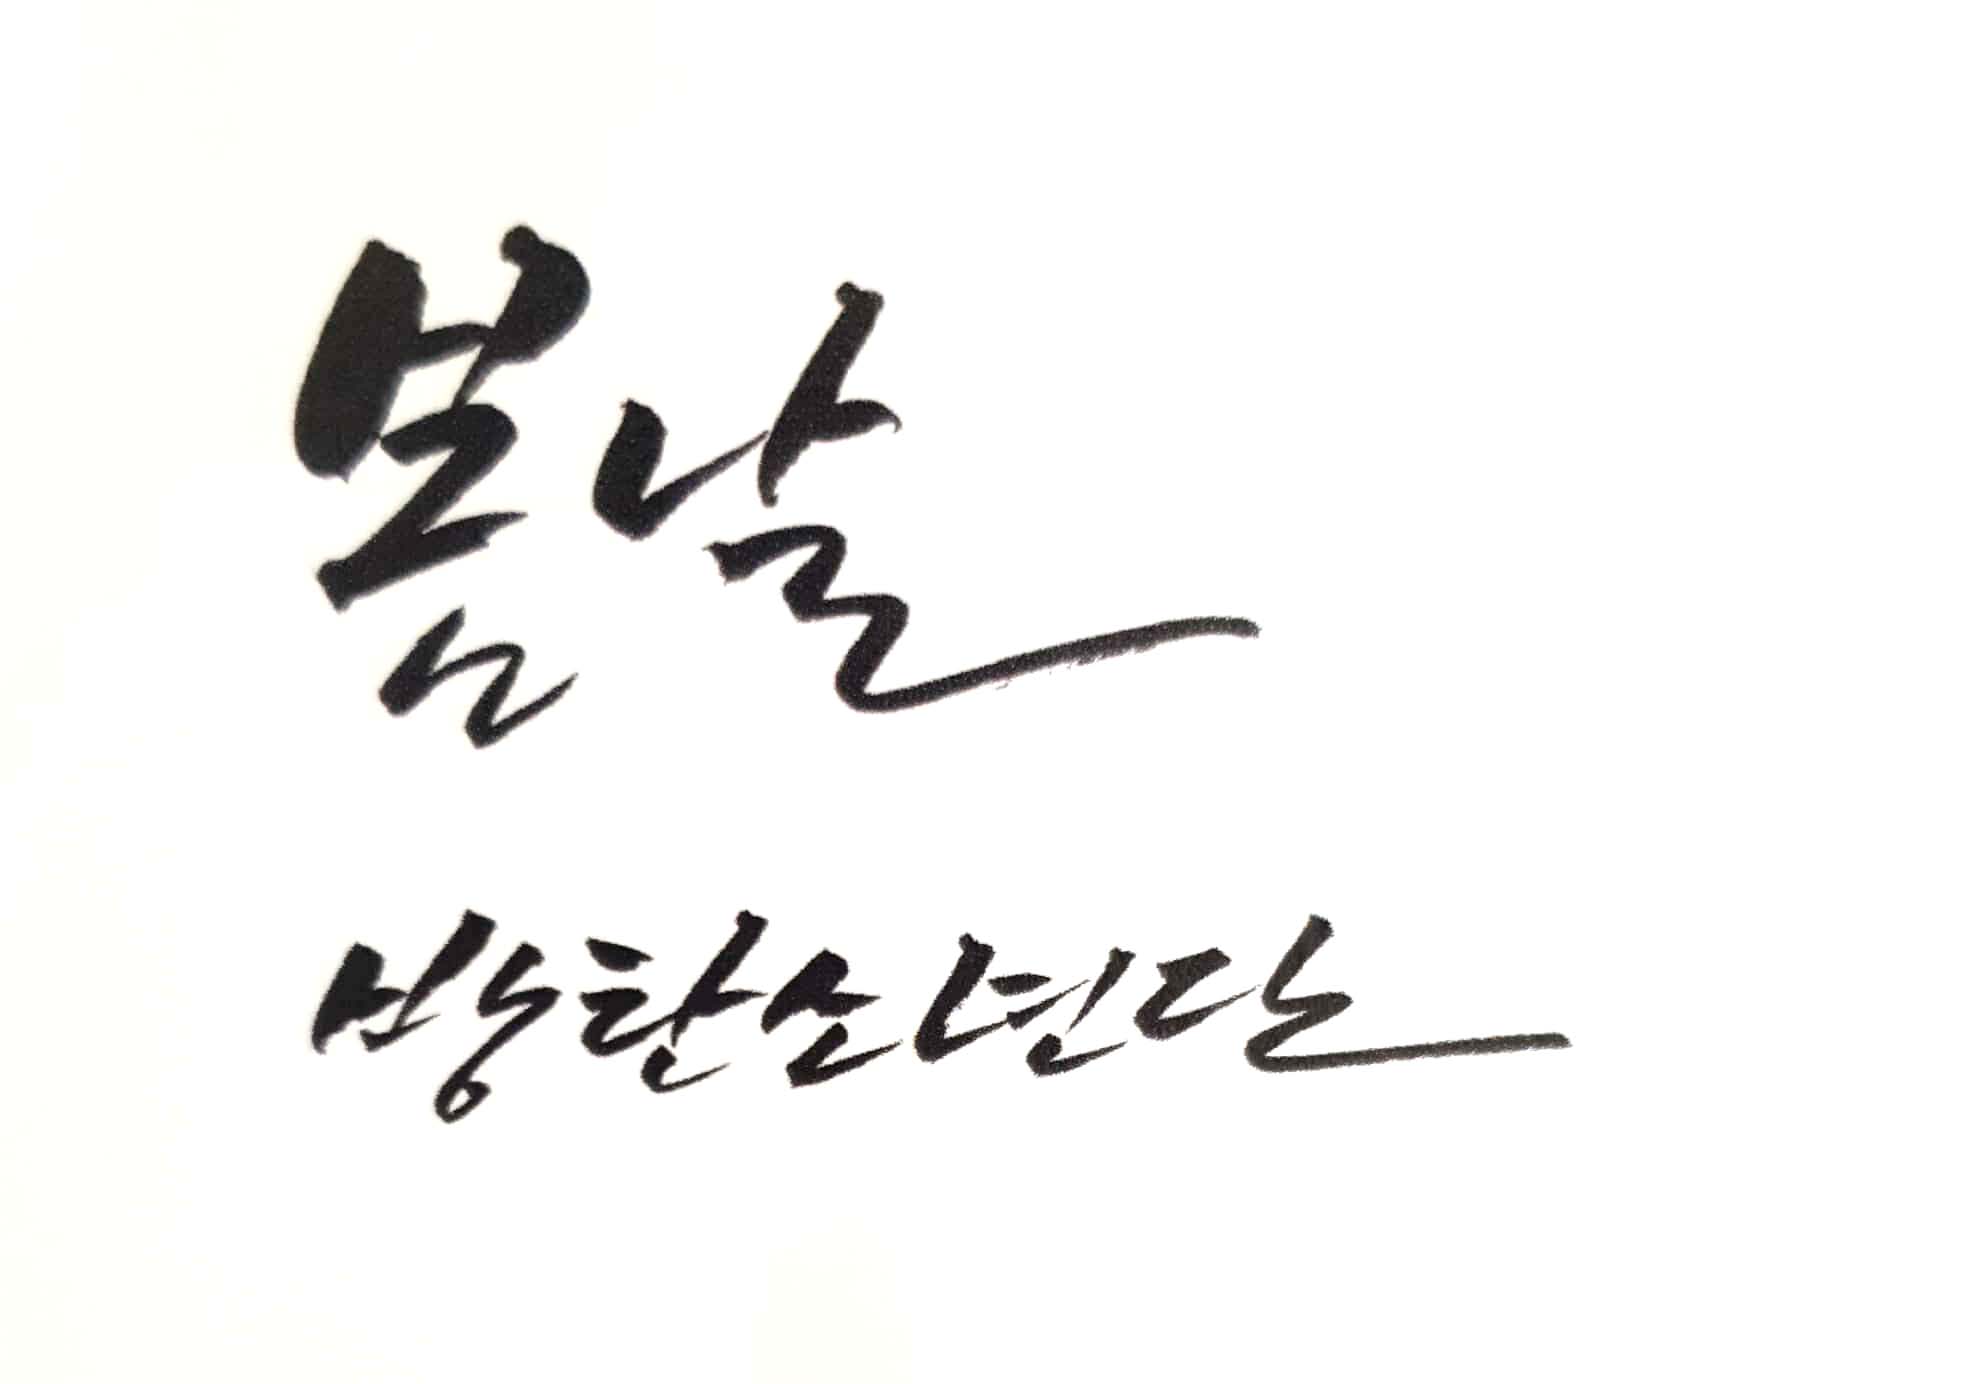 봄날
방탄소년단